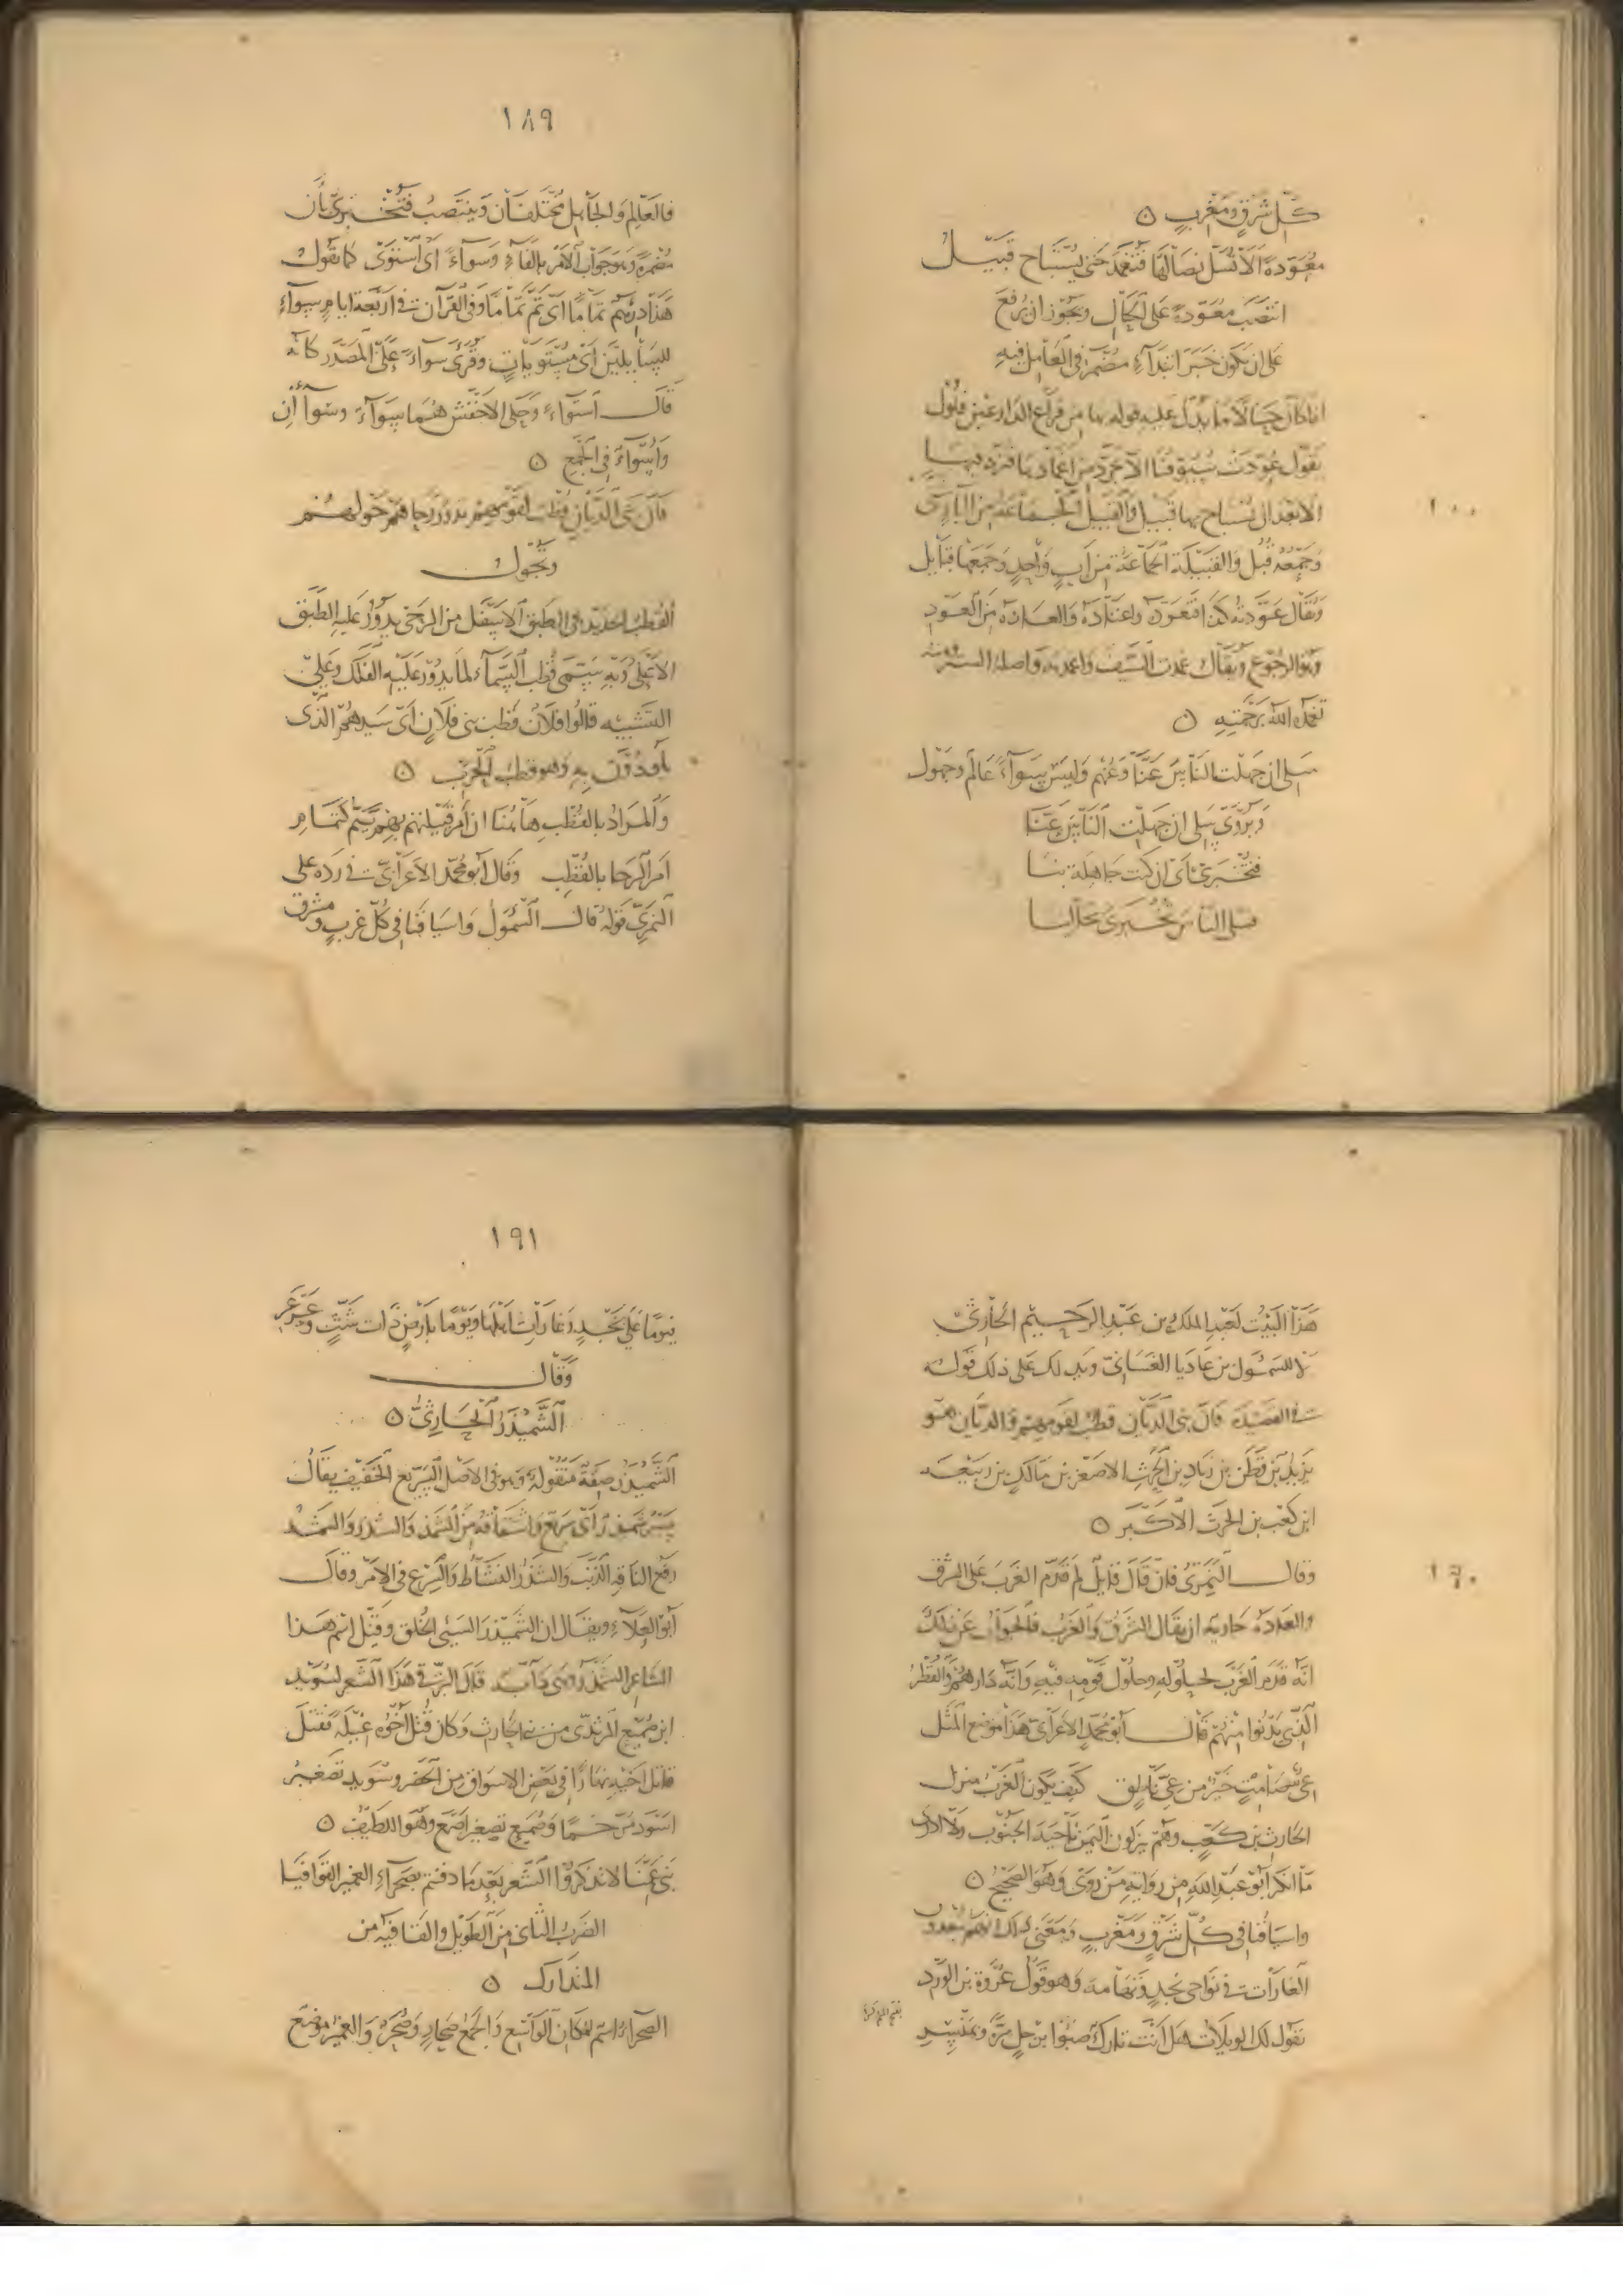 كل شرق ومغرب ۞
معودة الا تسل نصالها فتغمد حتى يستباح قبيل
انتصب معودة على الحال ويجوز ان يرفع
على ان يكون خبر ابتداء مضمر والعامل فيه
اذا كان حالا ما يدل عليه قوله بها من قراع الدارعين فلول
يقول عودت سيوفنا الا تجرد من اغمادها فترد فيها
الا بعد ان تستباح بها قبيل والقبيل الجماعة من آباء شتى
وجمعه قبل والقبيلة الجماعة من اب واحد وجمعها قبايل
ويقال عودته كذا فتعود واعتاده والعادة من العود
وهو الرجوع ويقال غمدت السيف واغمدته واصله الستر ومنه
تغمده الله برحمته ۞
سلى ان جهلت الناس عنا وعنهم وليس سواء عالم وجهول
ويروى سلى ان جهلت الناس عنا
فتخبرى اى ان كنت جاهلة بنا
فسلى الناس تخبرى بحالنا
١٨٩
فالعالم والجاهل مختلفان وينتصب فتخبرى بأن
مضمرة وهو جواب الامر بالفاء وسواء اى استوى كما تقول
هذا درهم تماما اى تم تماما وفى القرآن فى اربعة ايام سواء
للسائلين اى مستويات وقرئ سواء على المصدر كانه
قال استواء وحكى الاخفش هما سواء وسواآن
واسواء فى الجمع ۞
فان بنى الديان قطب لقومهم تدور رحاهم حولهم
وتجول
القطب الحديد فى الطبق الاسفل من الرحى يدور عليه الطبق
الاعلى وبه يسمى قطب السماء لما يدور عليه الفلك وعلى
التشبيه قالوا فلان قطب بنى فلان اى سيدهم الذى
يلوذون به وهو قطب الحرب ۞
والمراد بالقطب هاهنا ان امر قبيلتهم بهم يتم كتمام
امر الرحا بالقطب وقال ابو محمد الاعرابى فى رده على
النمرى قوله قال السمول واسيافنا فى كل غرب ومشرق
١٩٠
هذا البيت لعبد الملك بن عبد الرحيم الحارثى
لا للسمول بن عاديا الغسانى ويدلك على ذلك قوله
فى القصيدة فان بنى الديان قطب لقومهم والديان هو
يزيد بن قطن بن زياد بن الحرث الاصغر بن مالك بن ربيعه
ابن كعب بن الحرث الاكبر ۞
وقال النمرى فان قال قايل لم قدم الغرب على الشرق
والعادة جارية ان يقال الشرق والغرب فالجواب عن ذلك
انه قدم الغرب لحلوله وحلول قومه فيه وانه دارهم والقطر
الذى بدئوا منهم قال ابو محمد الاعرابى هذا موضع المثل
عى صامت خير من عى ناطق كيف يكون الغرب منزل
الحارث بن كعب وهم ينزلون اليمن ناحية الجنوب ولا ادرى
ما انكر ابو عبد الله من رواية من روى وهو الصحيح ۞
واسيافنا فى كل شرق ومغرب ومعنى ذلك انهم يبعدون
الغارات فى نواحى نجد وتهامه وهو قول عروة بن الورد
تقول لك الويلات هل انت تارك ضبوا برجل مرة وبمنسر
١٩١
فيوما على نجد وغارات اهلها ويوما بارض ذات شث وعرعر
وقال
الشميذر الحارثى ۞
الشميذر صفة منقولة وهو فى الاصل السريع الخفيف يقال
سير شميذر اى سريع واشتقاقه من الشمذ والشذر والشمذ
رفع الناقة الذنب والشذر النشاط والسرع فى الامر وقال
ابو العلاء ويقال ان الشميذر السيئ الخلق وقيل اسم هذا
الشاعر الشميذر قال البرقى هذا الشعر لسويد
ابن صميع المرثدى من بنى الحارث وكان قتل اخوه غيلة فقتل
قاتل اخيه نهارا فى بعض الاسواق من الحضر وسويد تصغير
اسود مرخما وصميع تصغير اصمع وهو اللطيف ۞
بنى عمنا لا تذكروا الشعر بعد ما دفنتم بصحراء الغمير القوافيا
الضرب الثانى من الطويل والقافية من
المتدارك ۞
الصحراء اسم لمكان الواسع والجمع صحار وصحر والغمير موضع